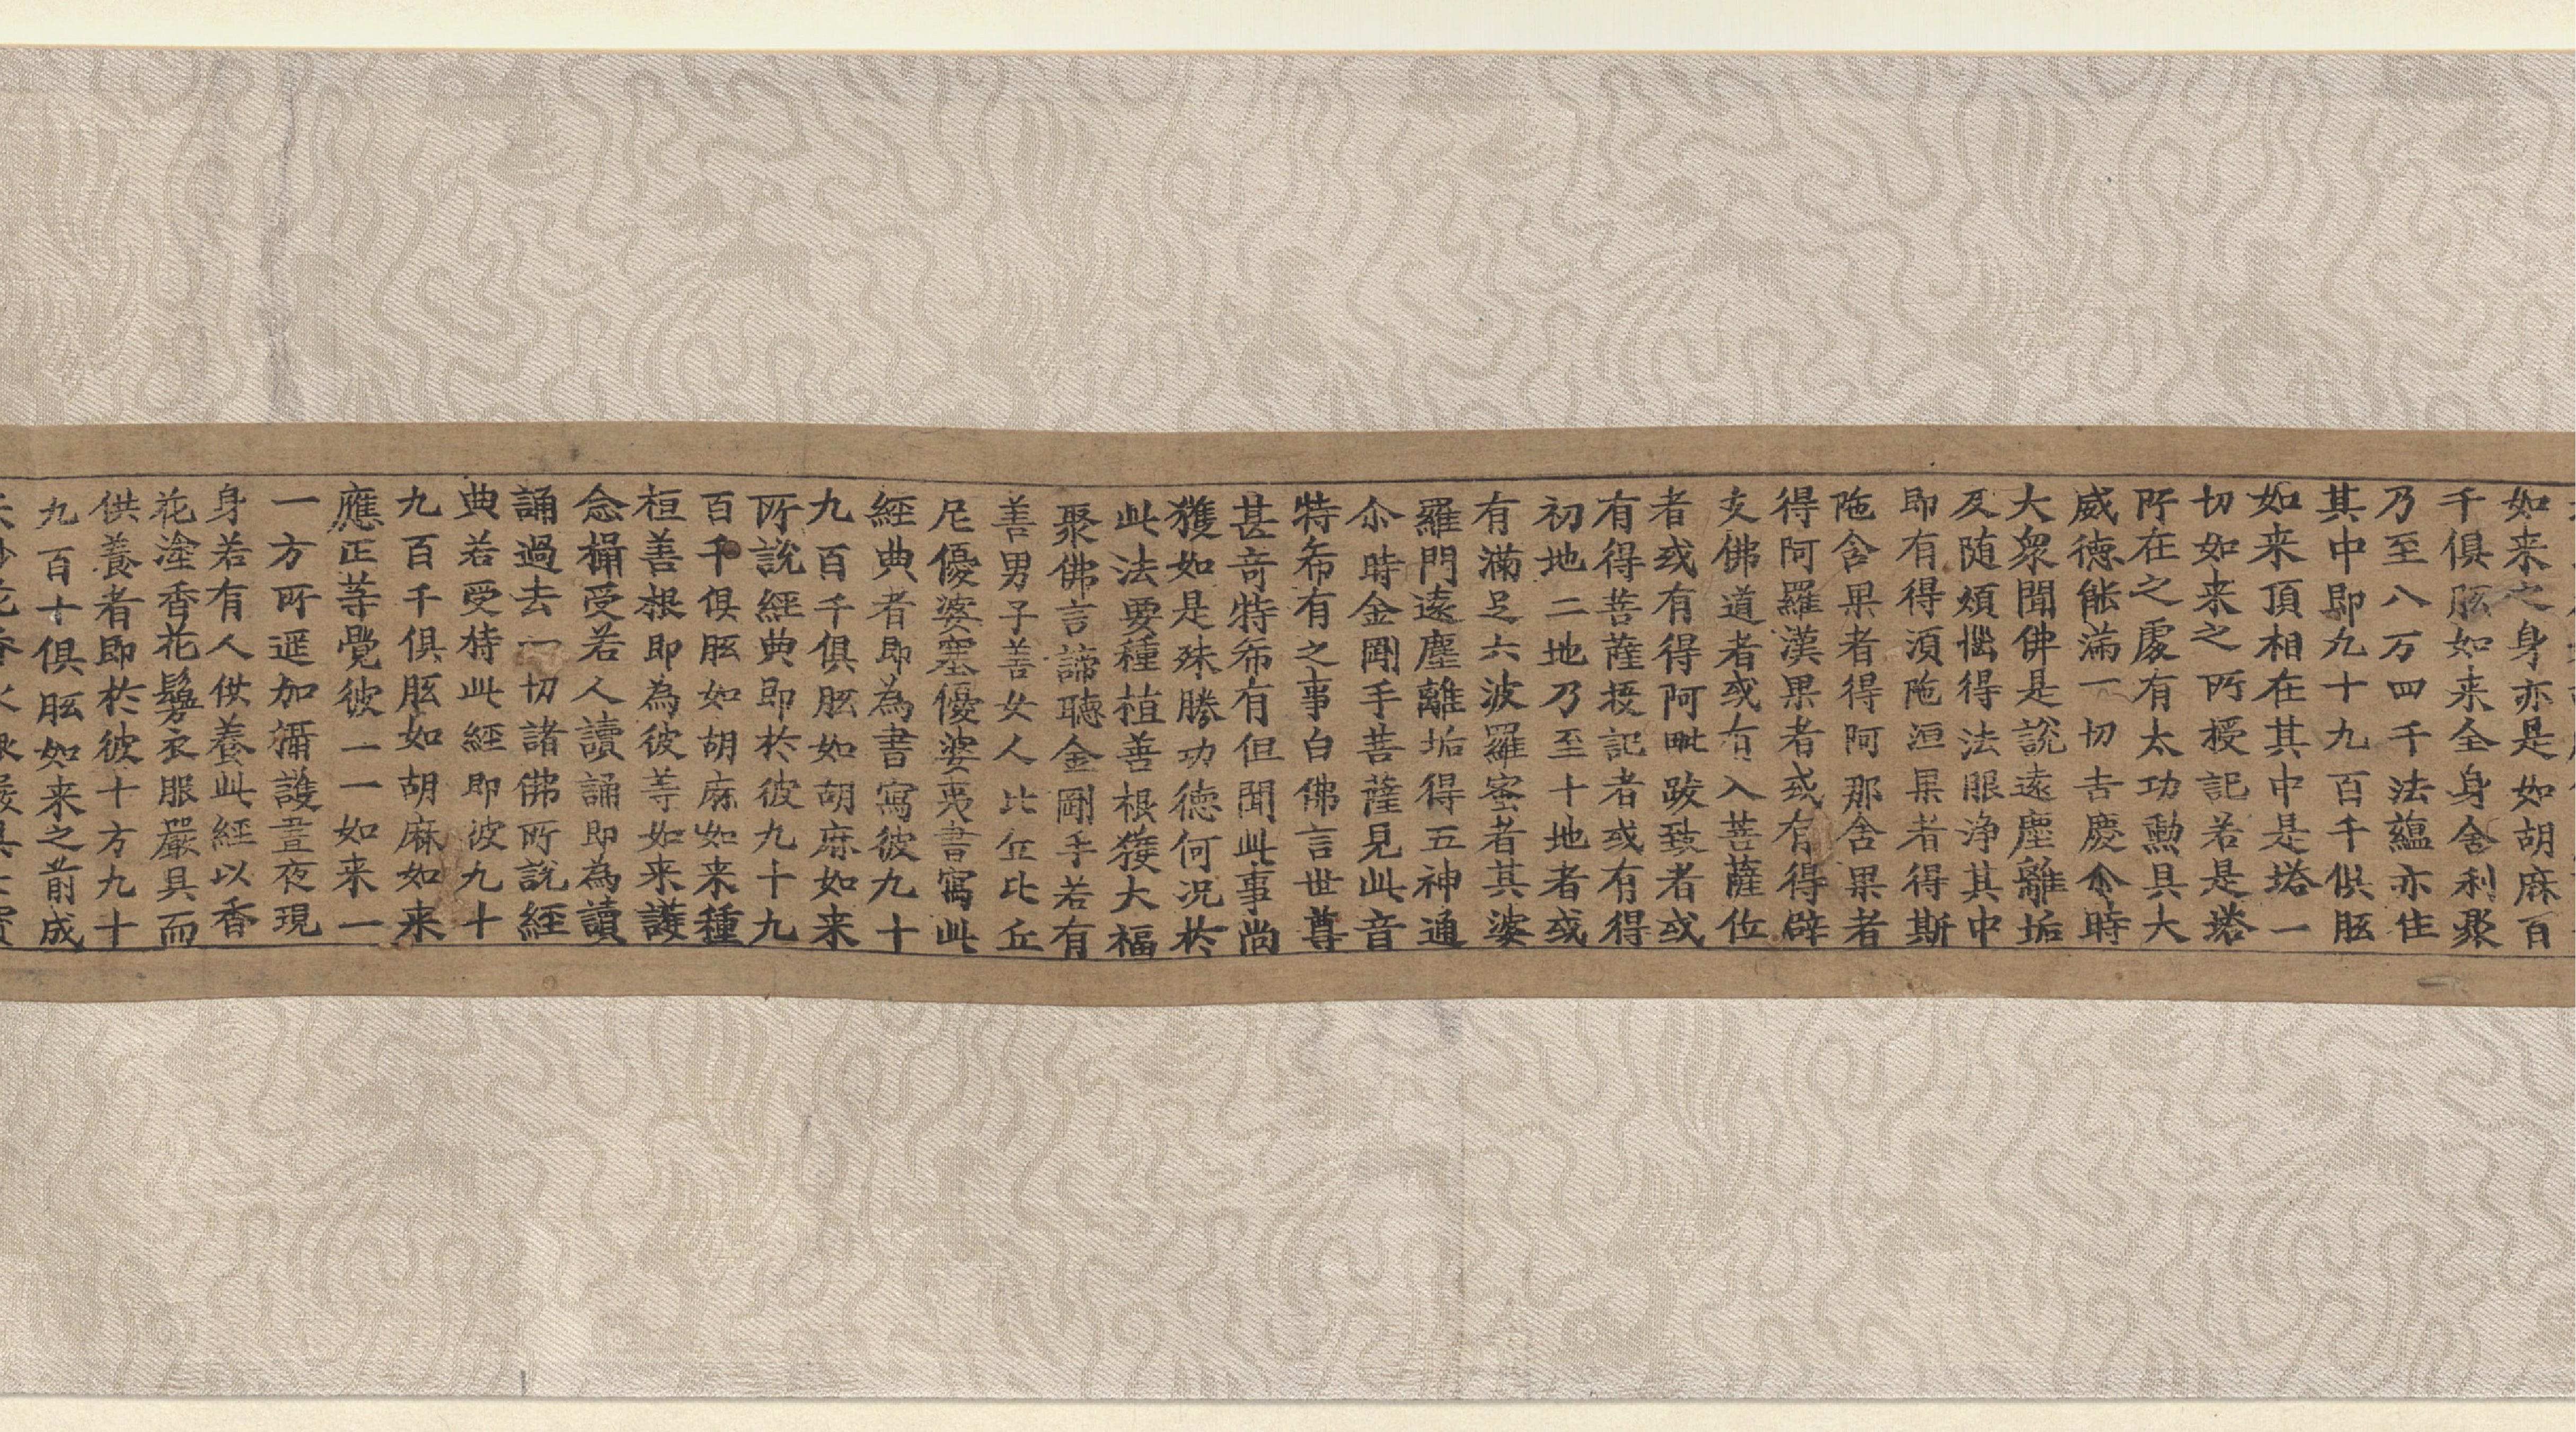 如来之身亦是如胡麻百
千俱胝如来全身舍利聚
乃至八万四千法蘊亦住
其中即九十九百千俱胝
如来頂相在其中是塔一
切如来之所授記若是塔
所在之處有太功勲具大
威德能滿一切吉慶尒時
大衆聞佛是說遠塵離垢
及随煩惱得法眼浄其中
即有得湏陁洹果者得斯
陁含果者得阿那含果者
得阿羅漢果者或有得辟
支佛道者或有入菩薩位
者或有得阿毗跋致者或
有得菩薩授記者或有得
初地二地乃至十地者或
有滿足六波羅蜜者其婆
羅門遠塵離垢得五神通
尒時金剛手菩薩見此音
特希有之事白佛言世尊
甚竒特希有但聞此事尚
獲如是殊勝功德何況於
此法要種植善根獲大福
聚佛言諦聽金剛手若有
善男子善女人比丘比丘
尼優婆塞優婆夷書寫此
經典者即為書寫彼九十
九百千俱胝如胡麻如来
所說經典即於彼九十九
百千俱胝如胡麻如来種
桓善根即為彼等如来護
念攝受若人讀誦即為讀
誦過去一切諸佛所說經
典若受持此經即彼九十
九百千俱胝如胡麻如来
應正等覺彼一一如来一
一方所遥加攝護晝夜現
身若有人供養此經以香
花塗香花鬘衣服嚴具而
供養者即於彼十方九十
九百十俱胝如来之前成